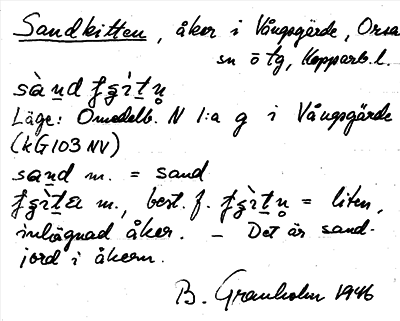 Sandkitten, åker i Vångsgärde, Orsa
sn ö tg, Kopparb. l.
sànd ʃgìtn̥
Läge: Omedelb. N 1:a g i Vångsgärde
(kG103 NV)
sand m. = sand
ʃgìta m., best. f. ʃgìtn̥ = liten,
inhägnad åker. – Det är sand-
jord i åkern.
B. Granholm 1946